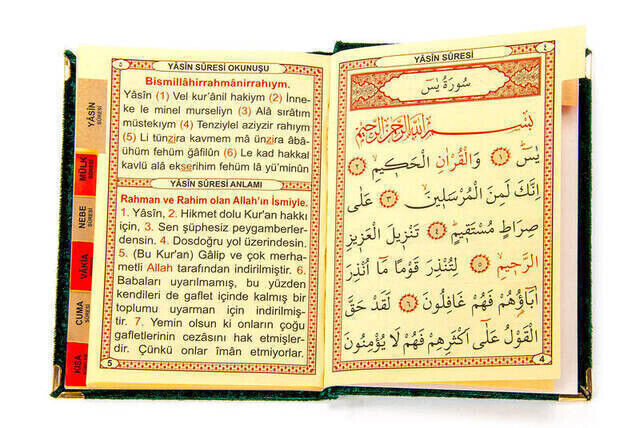 ٥
YÂSİN SÛRESİ OKUNUŞU
Bismillâhirrahmânirrahıym.
Yâsîn (1) Vel kur'ânil hakiym (2) İnne-
ke le minel murseliyn (3) Alâ sırâtım
müstekıym (4) Tenziylel aziyzir rahıym
(5) Li tünzira kavmem mâ ünzira âbâ-
ühüm fehüm ğâfilûn (6) Le kad hakkal
kavlü alâ ekserihim fehüm lâ yü'minûn
YÂSİN SÛRESİ ANLAMI
Rahman ve Rahim olan Allah'ın İsmiyle.
1. Yâsîn, 2. Hikmet dolu Kur'an hakkı
için, 3. Sen şüphesiz peygamberler-
densin. 4. Dosdoğru yol üzerindesin.
5. (Bu Kur'an) Gâlip ve çok merha-
metli Allah tarafından indirilmiştir. 6.
Babaları uyarılmamış, bu yüzden
kendileri de gaflet içinde kalmış bir
toplumu uyarman için indirilmiş-
tir. 7. Yemin olsun ki onların çoğu
gafletlerinin cezasını hak etmişler-
dir. Çünkü onlar îman etmiyorlar.
5
YÂSİN SÛRESİ
MÜLK SÛRESİ
NEBE SÛRESİ
VÂKIA SÛRESİ
CUMA SÛRESİ
KISA
YÂSİN SÛRESİ
٤
سُورَةُ يٰسٓ
بِسْمِ اللّٰهِ الرَّحْمٰنِ الرَّحِيمِ
يٰسٓ ١ وَالْقُرْاٰنِ الْحَكِيمِ ٢
اِنَّكَ لَمِنَ الْمُرْسَلِينَ ٣ عَلٰى
صِرَاطٍ مُسْتَقِيمٍ ٤ تَنْزِيلَ الْعَزِيزِ
الرَّحِيمِ ٥ لِتُنْذِرَ قَوْمًا مَٓا اُنْذِرَ
اٰبَٓاؤُهُمْ فَهُمْ غَافِلُونَ ٦ لَقَدْ حَقَّ
الْقَوْلُ عَلٰٓى اَكْثَرِهِمْ فَهُمْ لَا يُؤْمِنُونَ
4